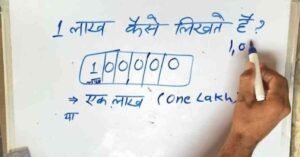 1 लाख कैसे लिखते हैं ?
1,0
1 0 0 0 0 0
लाख
⇒ एक लाख (One Lakh
या